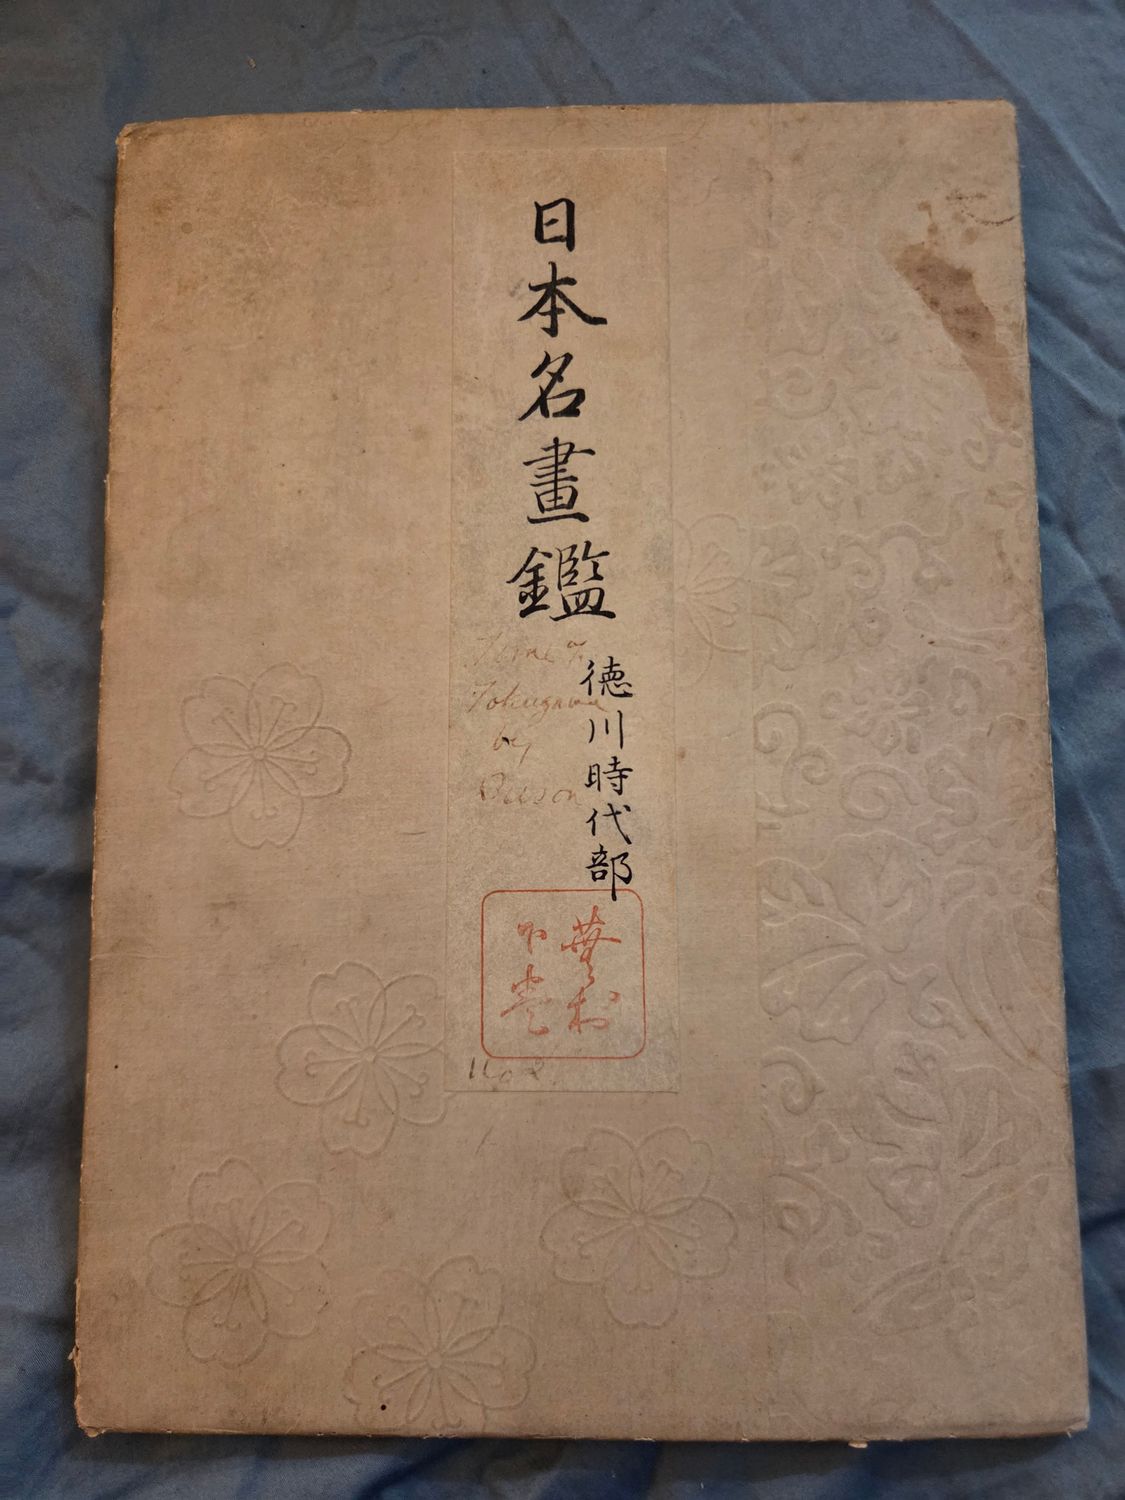 日本名畫鑑
徳川時代部
Time of
Tokugawa
by
Buson
蕪村
下巻
No 2